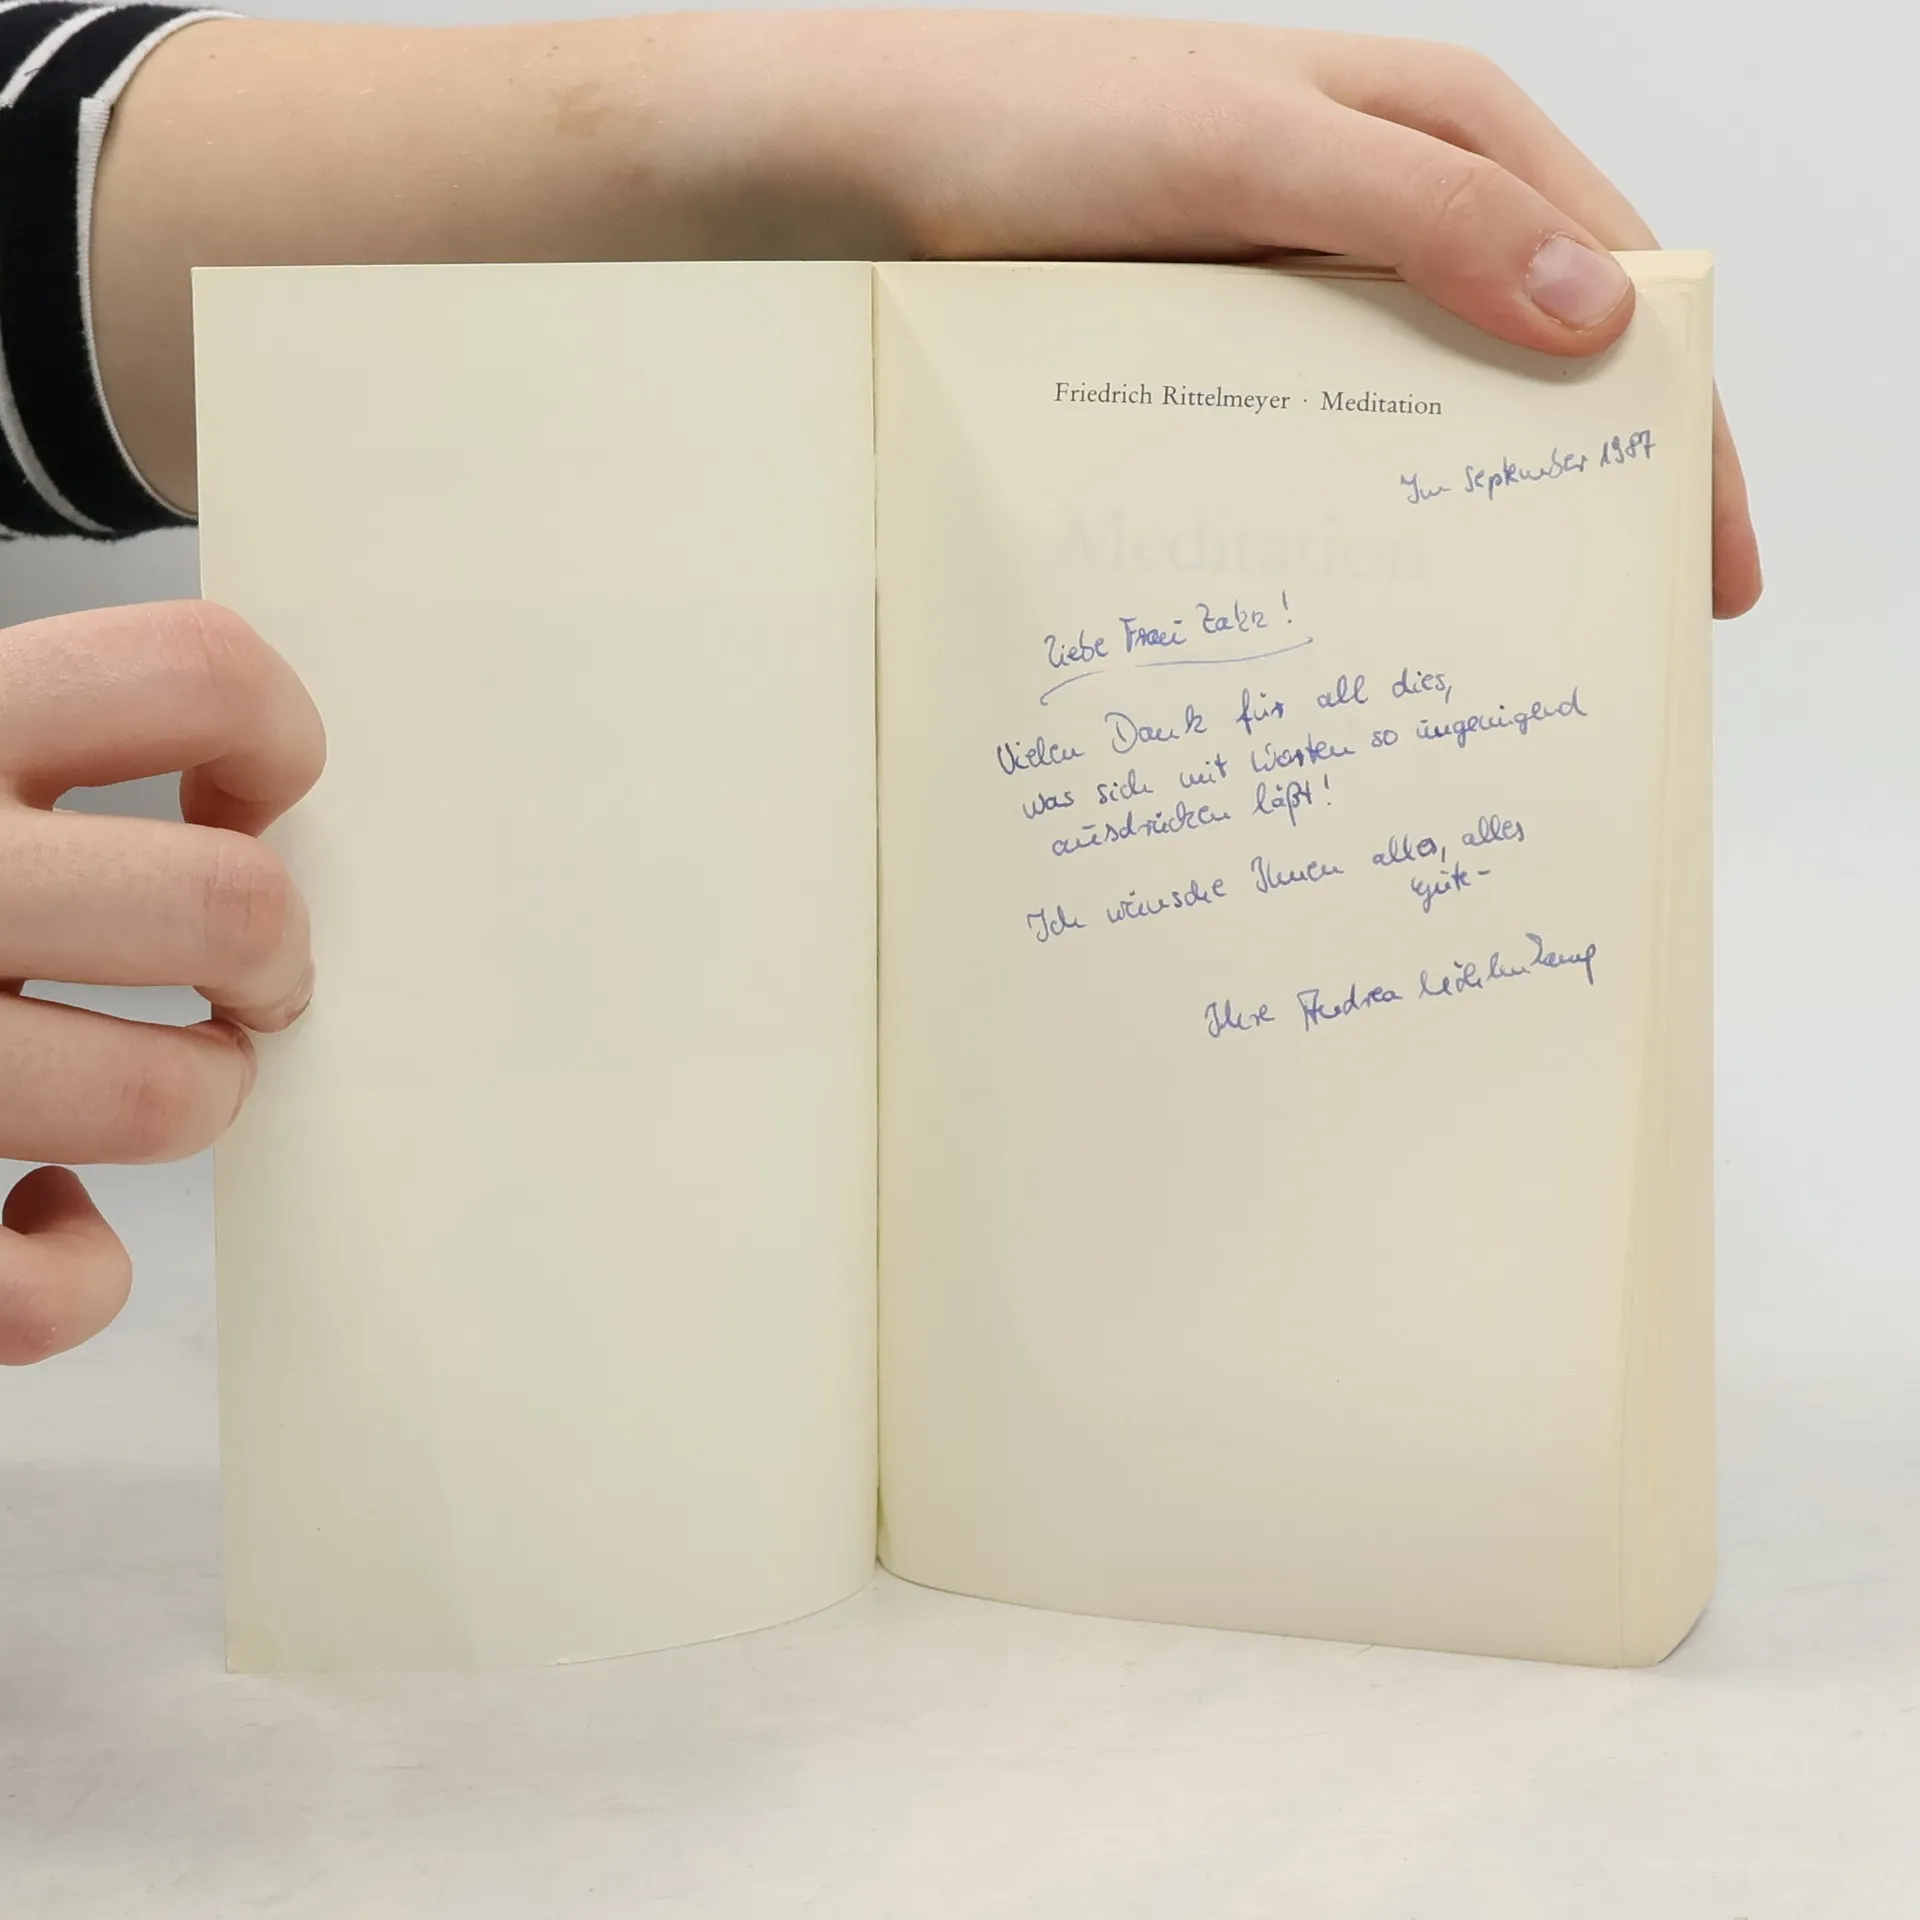 Friedrich Rittelmeyer · Meditation
Im September 1987
Meditation
Liebe Frau Zahn!
Vielen Dank für all dies,
was sich mit Worten so ungenügend
ausdrücken läßt!
Ich wünsche Ihnen alles, alles
gute –
Ihre Andrea